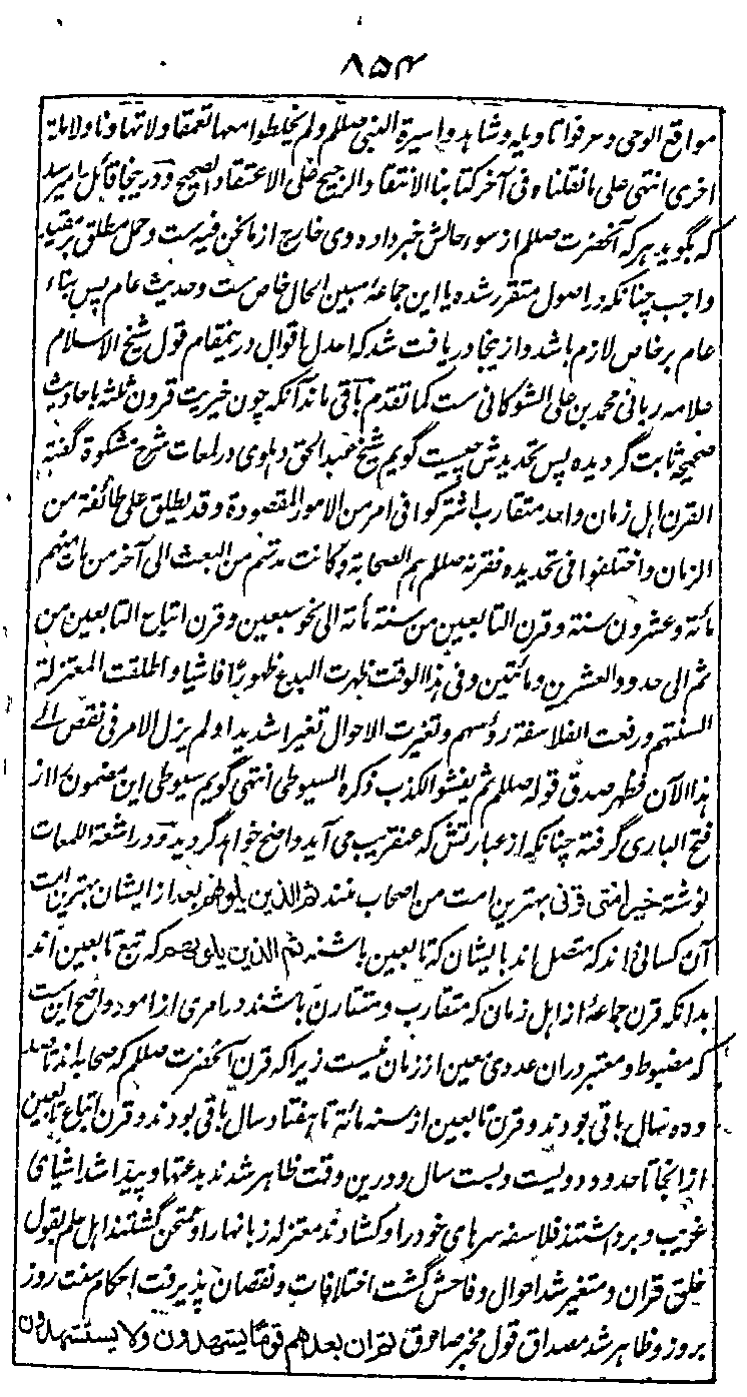 ۸۵۴
مواقع الوحی و عرفوا تاویله و شاهدوا سیرة النبی صلعم ولم یخلطوا معها تعمقا ولا تهاونا ولا ملة
اخری انتهی علی ما نقلناه فی آخر کتابنا الانتقاد الرجیح فی الاعتقاد الصحیح و درینجا قائل را میرسد
که بگوید هر که آنحضرت صلعم از سوء حالش خبر داده وی خارج از ما نحن فیه ست و حمل مطلق بر مقید
واجب چنانکه در اصول متقرر شده یا این جماعهٔ مبین الحال خاص ست و حدیث عام پس بناء
عام بر خاص لازم باشد و ازینجا دریافت شد که اعدل اقوال درینمقام قول شیخ الاسلام
علامه ربانی محمد بن علی الشوکانی ست کما تقدم باقی ماند آنکه چون خیریت قرون ثلثه باحادیث
صحیحه ثابت گردیده پس تحدیدش چیست گویم شیخ عبد الحق دهلوی در لمعات شرح مشکوة گفته
القرن اهل زمان واحد متقارب اشترکوا فی امر من الامور المقصودة و قد یطلق علی طائفة من
الزمان و اختلفوا فی تحدیده فقرنه صلعم هم الصحابة و کانت مدتهم من البعث الی آخر من مات منهم
مائة و عشرون سنة و قرن التابعین من سنة مائة الی نحو سبعین و قرن اتباع التابعین من
ثم الی حدود العشرین و مائتین و فی هذا الوقت ظهرت البدع ظهورا فاشیا و اطلقت المعتزلة
السنتهم و رفعت الفلاسفة رؤسهم و تغیرت الاحوال تغیرا شدیدا و لم یزل الامر فی نقص الی
هذا الآن فظهر صدق قوله صلعم ثم یفشو الکذب ذکره السیوطی انتهی گویم سیوطی این مضمون را از
فتح الباری گرفته چنانکه از عبارتش که عنقریب می آید واضح خواهد گردید و در اشعة اللمعات
نوشته خیر امتی قرنی بهترین امت من اصحاب منند ثم الذین یلونهم بعد از ایشان بهترین امت
آن کسانی اند که متصل اند بایشان که تابعین باشند ثم الذین یلونهم که تبع تابعین اند
بدانکه قرن جماعهٔ از اهل زمان که متقارب و متقارن باشند در امری از امور و اصح این ست
که مضبوط و معتبر در ان عددی معین از زمان نیست زیرا که قرن آنحضرت صلعم که صحابه اند تا صد
و ده سال باقی بودند و قرن تابعین از سنه مائة تا هفتاد سال باقی بودند و قرن اتباع تابعین
از انجا تا حدود دویست و بست سال و درین وقت ظاهر شدند بدعتها و پیدا شد اشیای
غریب و برداشتند فلاسفه سرهای خود را و کشادند معتزله زبانها را و ممتحن گشتند اهل علم بقول
خلق قران و متغیر شد احوال و فاحش گشت اختلافات و نقصان پذیرفت احکام سنت روز
بروز و ظاهر شد مصداق قول مخبر صادق ثم ان بعدهم قوما یشهدون ولا یستشهدون